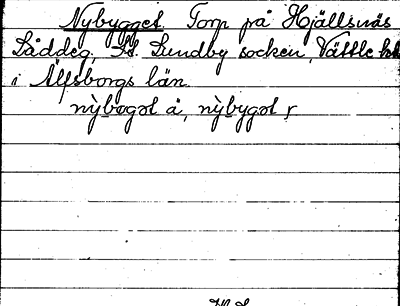 Nybygget Torp på Hjällsnäs
Säddeg, St. Lundby socken, Vättle
i Älfsborgs län
nỳbøgət å, nỳbygət r